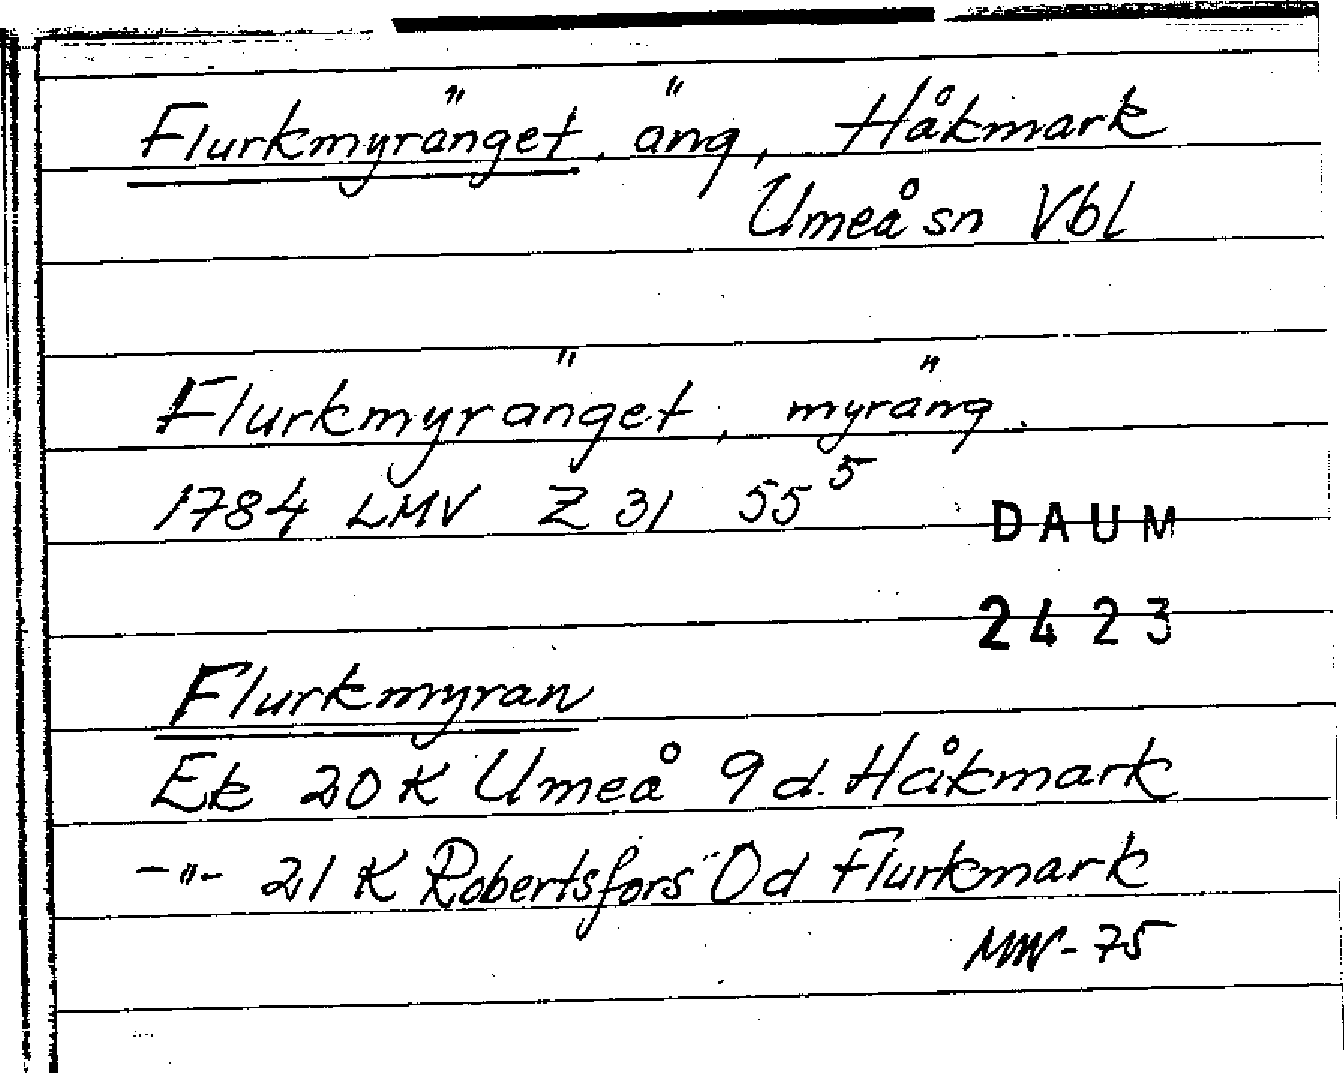 Flurkmyränget, äng, Håkmark
Umeå sn Vbl
Flurkmyränget, myräng.
1784 LMV Z 31 55⁵
DAUM
2423
Flurkmyran
Ek 20K Umeå 9d. Håkmark
-"- 21 K Robertsfors 0d Flurkmark
MW-75